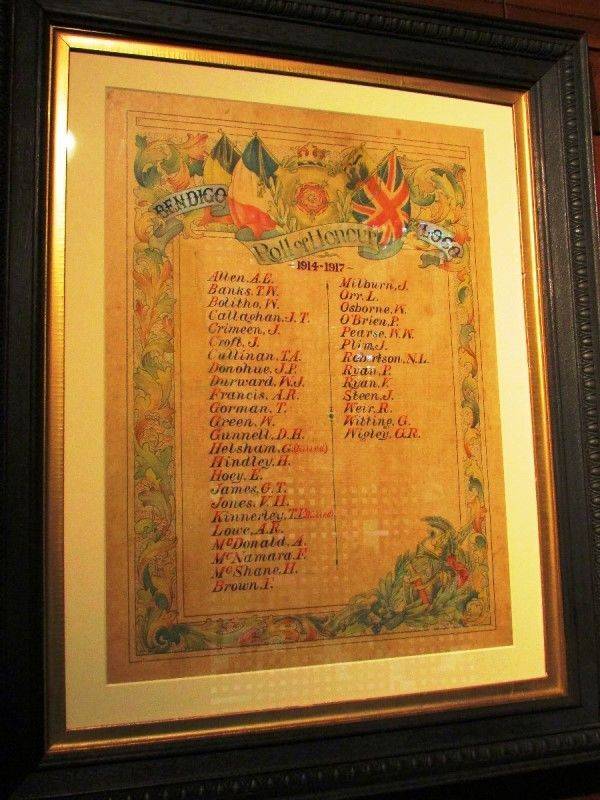 BENDIGO
LOCO
Roll of Honour
1914-1917
Allen, A.E.
Banks, T.W.
Bolitho, W.
Callaghan, J.T.
Crimeen, J.
Croft, J.
Cullinan, T.A.
Donohue, J.P.
Durward, W.J.
Francis, A.R.
Gorman, T.
Green, W.
Gunnell, D.H.
Helsham, G. (Killed)
Hindley, H.
Hoey, E.
James, G.T.
Jones, V.H.
Kinnerley, T.I. (Killed)
Lowe, A.R.
McDonald, A.
McNamara, F.
McShane, H.
Brown, T.
Milburn, J.
Orr, L.
Osborne, W.
O'Brien, P.
Pearse, W.W.
Plim, J.
Robertson, N.L.
Ryan, P.
Ryan, V.
Steen, J.
Weir, R.
Witting, G.
Wigley, G.R.